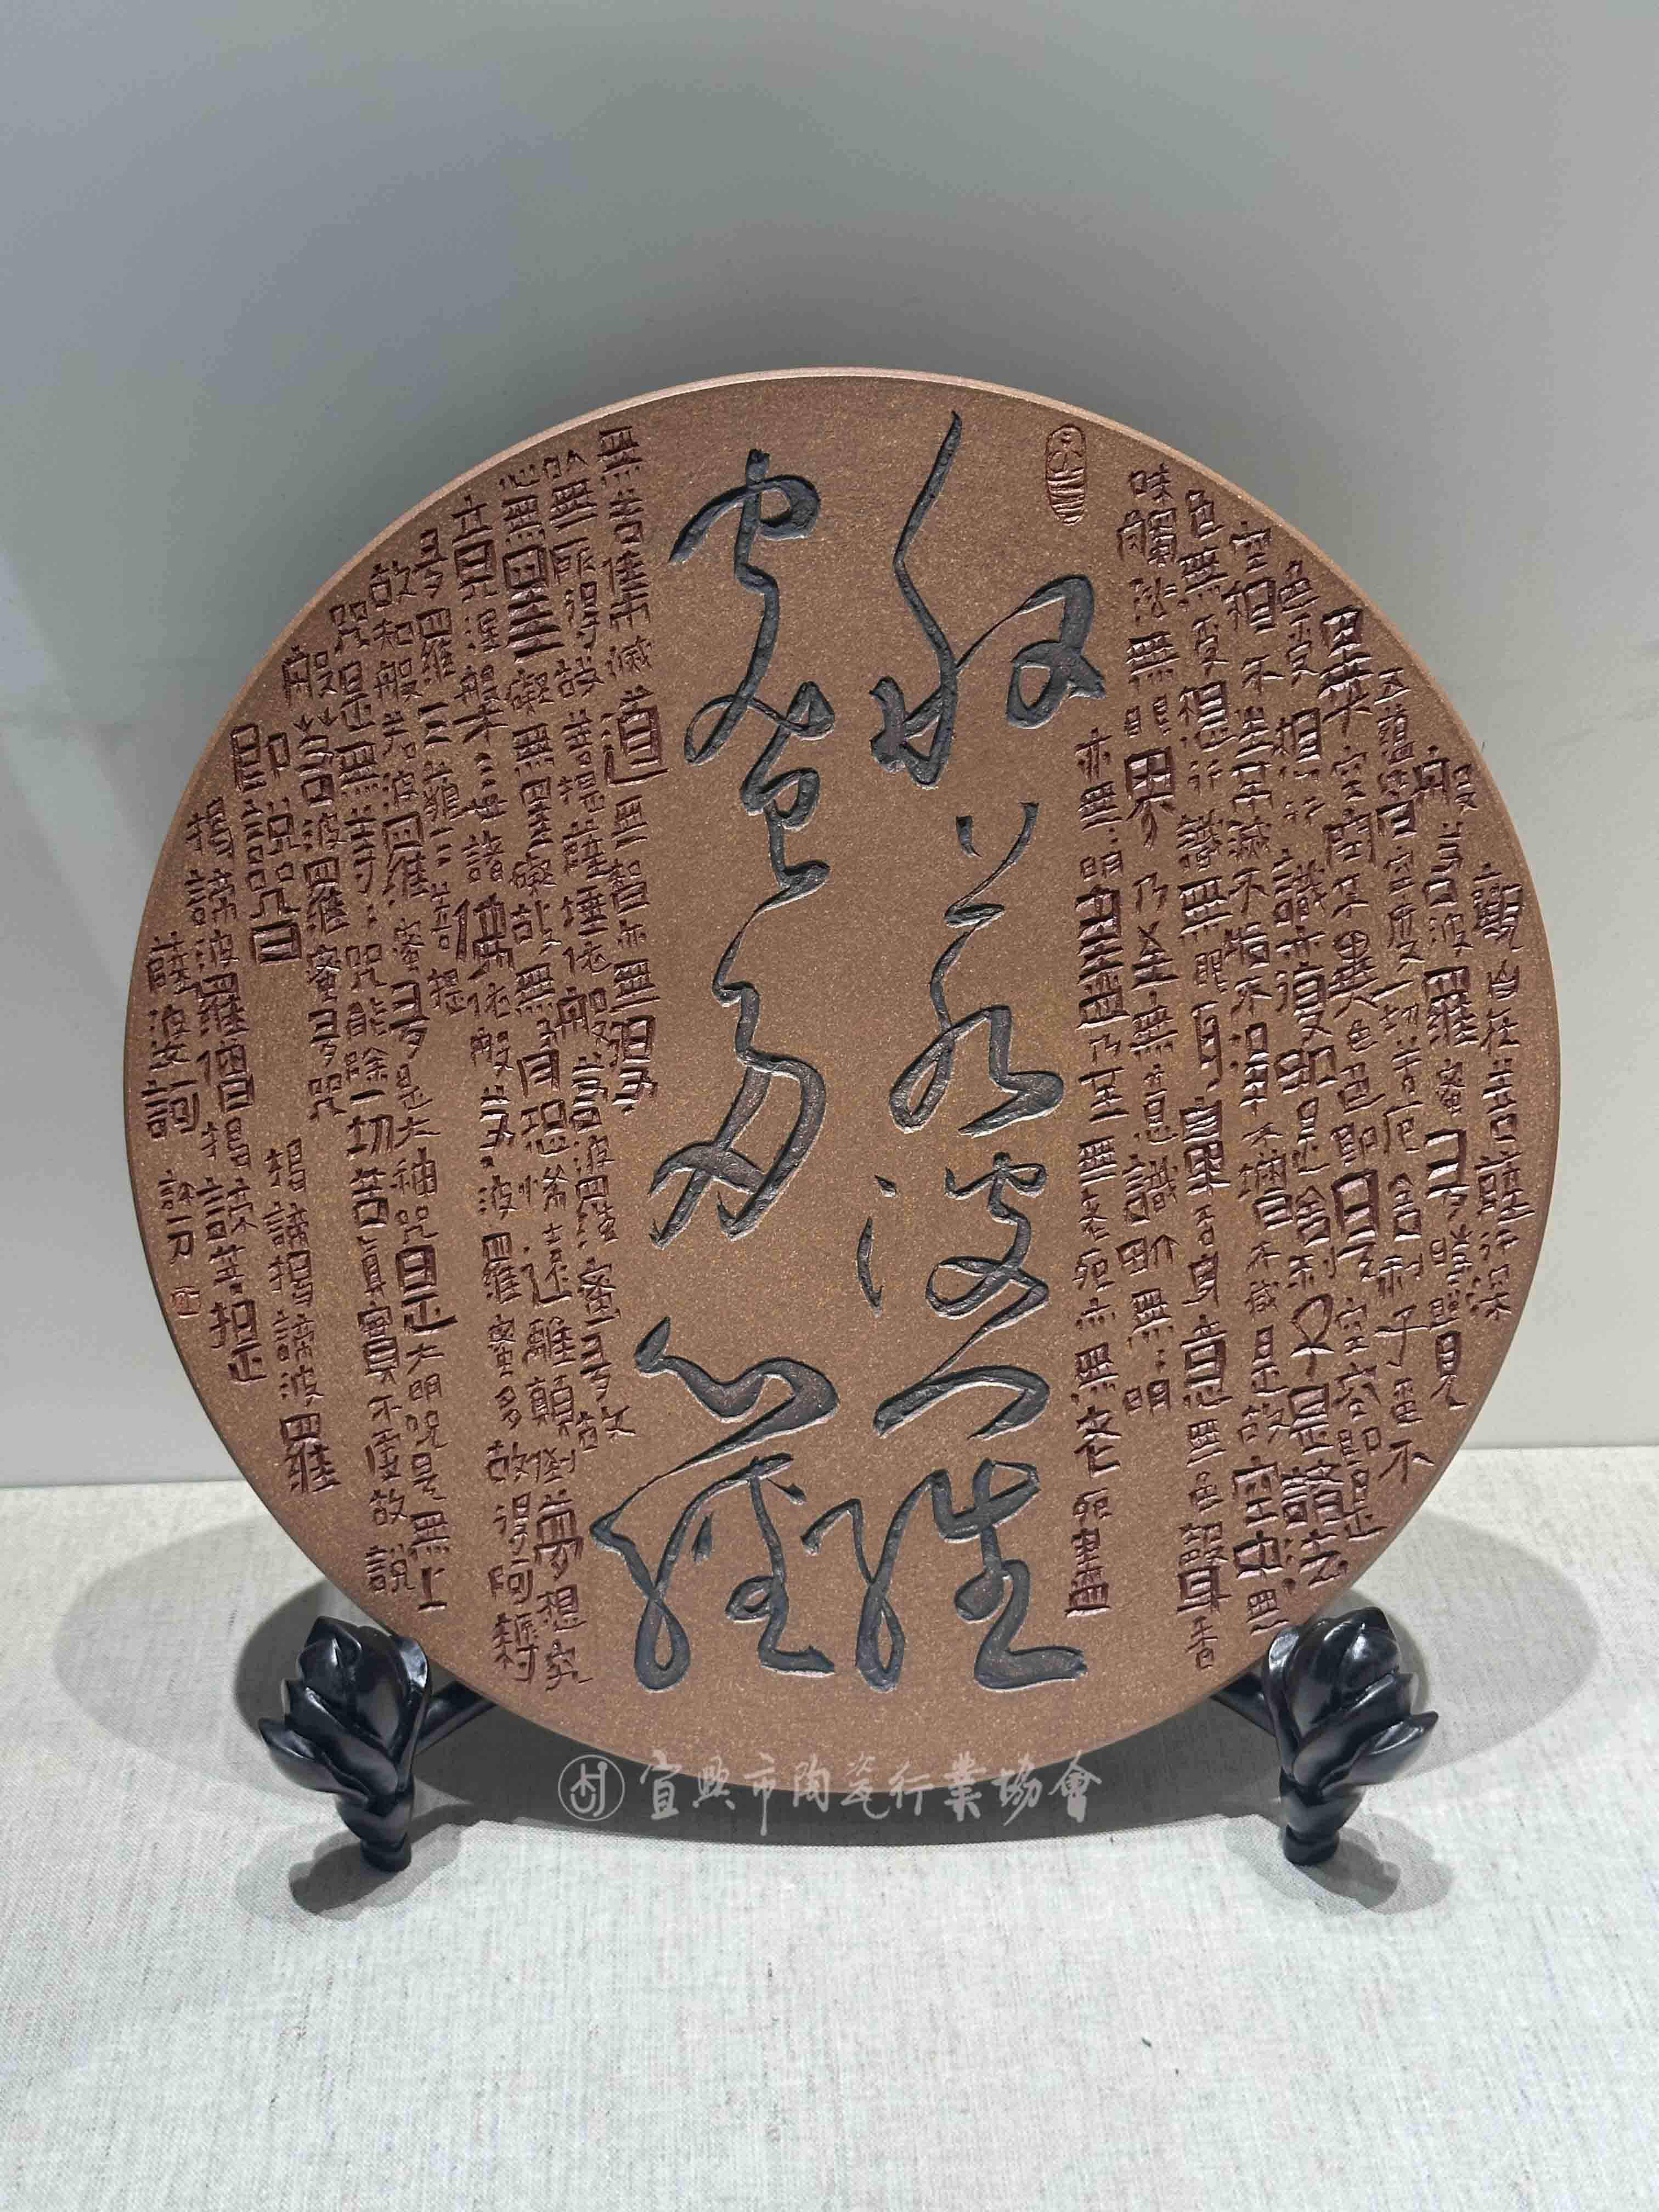 觀自在菩薩行深
般若波羅蜜多時照見
五蘊皆空度一切苦厄舍利子色不
異空空不異色色即是空空即是
色受想行識亦復如是舍利子是諸法
空相不生不滅不垢不淨不增不減是故空中無
色無受想行識無眼耳鼻舌身意無色聲香
味觸法無眼界乃至無意識界無〻明
亦無〻明盡乃至無老死亦無老死盡
般若波羅
蜜多心經
無苦集滅道無智亦無得
以無所得故菩提薩埵依般若波羅蜜多故
心無罣礙無罣礙故無有恐怖遠離顛倒夢想究
竟涅槃三世諸佛依般若波羅蜜多故得阿耨
多羅三藐三菩提
故知般若波羅蜜多是大神咒是大明咒是無上
咒是無等〻咒能除一切苦真實不虛故說
般若波羅蜜多咒
即說咒曰 揭諦揭諦波羅
揭諦波羅僧揭諦菩提
薩婆訶 許一刀
宜興市陶瓷行業協會